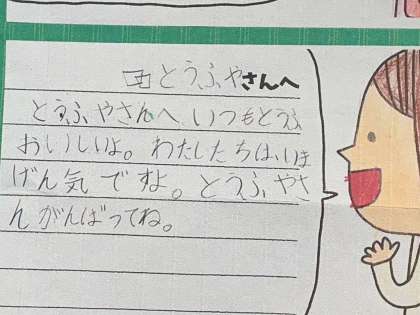 とうふやさんへ
とうふやさんへ いつもとうふ
おいしいよ。わたしたちは、いま
げん気ですよ。とうふやさ
んがんばってね。